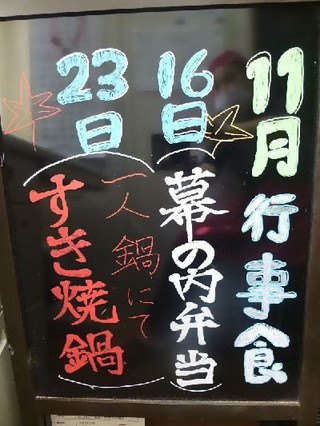 11月行事食
16日
幕の内弁当
23日
一人鍋にて
すき焼鍋